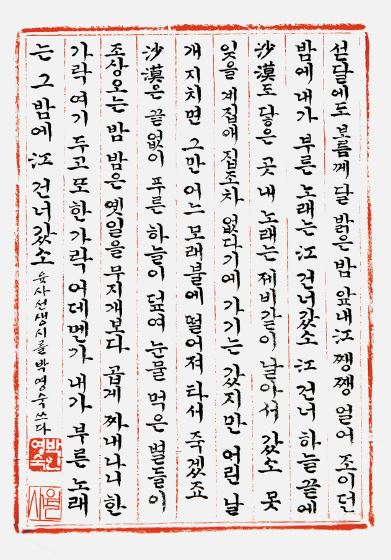 섣달에도 보름께 달 밝은 밤 앞내江 쨍쨍 얼어 조이던
밤에 내가 부른 노래는 江 건너갔소 江 건너 하늘 끝에
沙漠도 닿은 곳 내 노래는 제비같이 날아서 갔소 못
잊을 계집애 집조차 없다기에 가기는 갔지만 어린 날
개 지치면 그만 어느 모래불에 떨어져 타서 죽겠죠
沙漠은 끝없이 푸른 하늘이 덮여 눈물 먹은 별들이
조상오는 밤 밤은 옛일을 무지개보다 곱게 짜내나니 한
가락 여기 두고 또 한 가락 어데멘가 내가 부른 노래
는 그 밤에 江 건너갔소 육사선생시를 박영숙쓰다